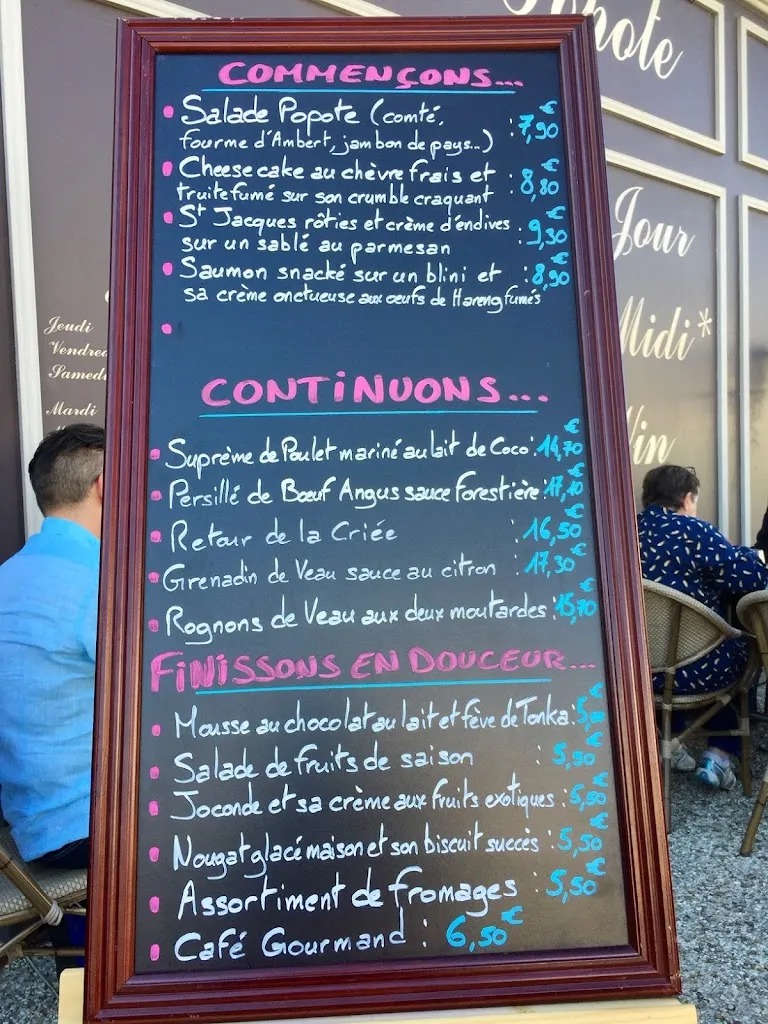 COMMENÇONS...
Salade Popote (comté, : 7,90 €
fourme d'Ambert, jambon de pays...)
Cheese cake au chèvre frais et : 8,80 €
truite fumé sur son crumble craquant
St Jacques rôties et crème d'endives : 9,30 €
sur un sablé au parmesan
Saumon snacké sur un blini et : 8,90 €
sa crème onctueuse aux oeufs de Hareng fumés
CONTINUONS...
Suprème de Poulet mariné au lait de Coco : 14,70 €
Persillé de Bœuf Angus sauce forestière : 17,10 €
Retour de la Criée : 16,50 €
Grenadin de Veau sauce au citron : 17,30 €
Rognons de Veau aux deux moutardes : 15,70 €
FINISSONS EN DOUCEUR...
Mousse au chocolat au lait et fève de Tonka : €
Salade de fruits de saison : 5,50 €
Joconde et sa crème aux fruits exotiques : 5,50 €
Nougat glacé maison et son biscuit succès : 5,50 €
Assortiment de fromages : 5,50 €
Café Gourmand : 6,50 €
Jeudi
Samedi
Mardi
Jour
Midi*